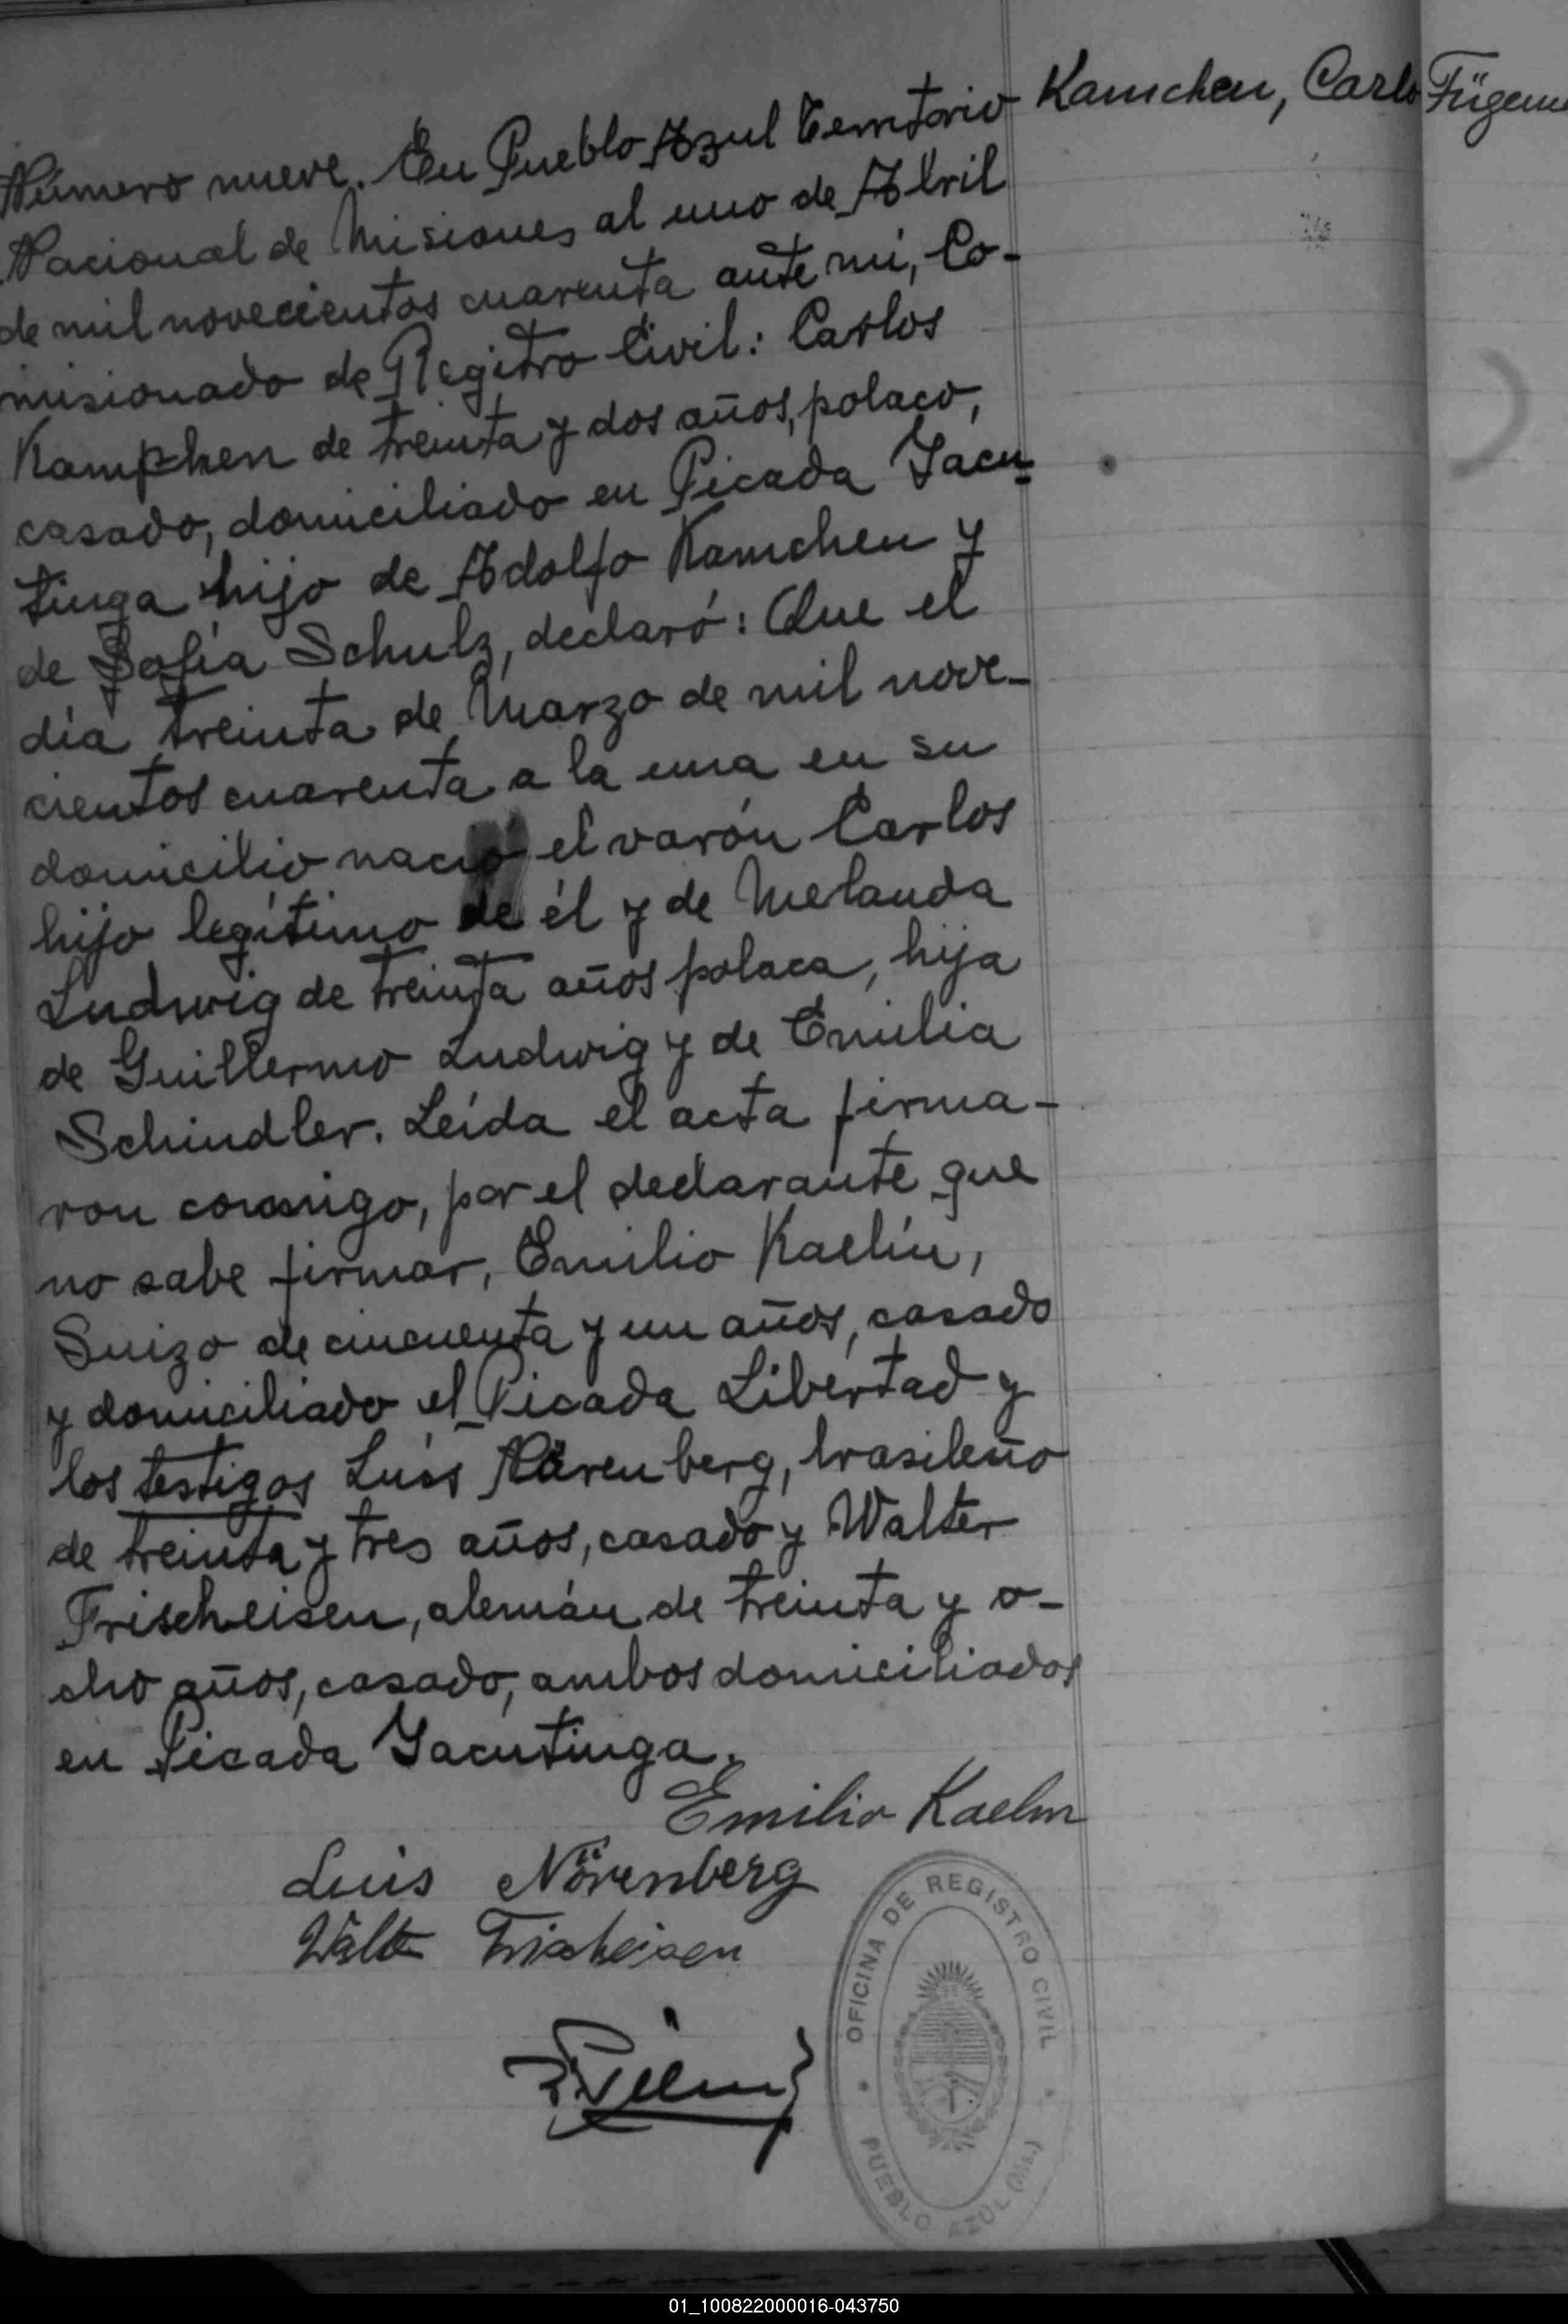 Kamchen, Carlo
Fügem
Número nueve. En Pueblo Azul Territorio
Nacional de Misiones al uno de Abril
de mil novecientos cuarenta ante mi, Co-
misionado de Registro Civil: Carlos
Kamphen de treinta y dos años, polaco,
casado, domiciliado en Picada Yacu-
tinga hijo de Adolfo Kamchen y
de Sofía Schulz, declaró: Que el
día treinta de Marzo de mil nove-
cientos cuarenta a la una en su
domicilio nació el varón Carlos
hijo legítimo de él y de Melanda
Ludwig de treinta años polaca, hija
de Guillermo Ludwig y de Emilia
Schindler. Leída el acta firma-
ron conmigo, por el declarante que
no sabe firmar, Emilio Kaelin,
Suizo de cincuenta y un años, casado
y domiciliado el Picada Libertad y
los testigos Luis Nörenberg, brasileño
de treinta y tres años, casado y Walter
Frischeisen, alemán de treinta y o-
cho años, casado, ambos domiciliados
en Picada Yacutinga.
Emilio Kaelin
Luis Nörenberg
Walter Frischeisen
OFICINA DE REGISTRO CIVIL
PUEBLO AZUL (Mis.)
01_100822000016-043750